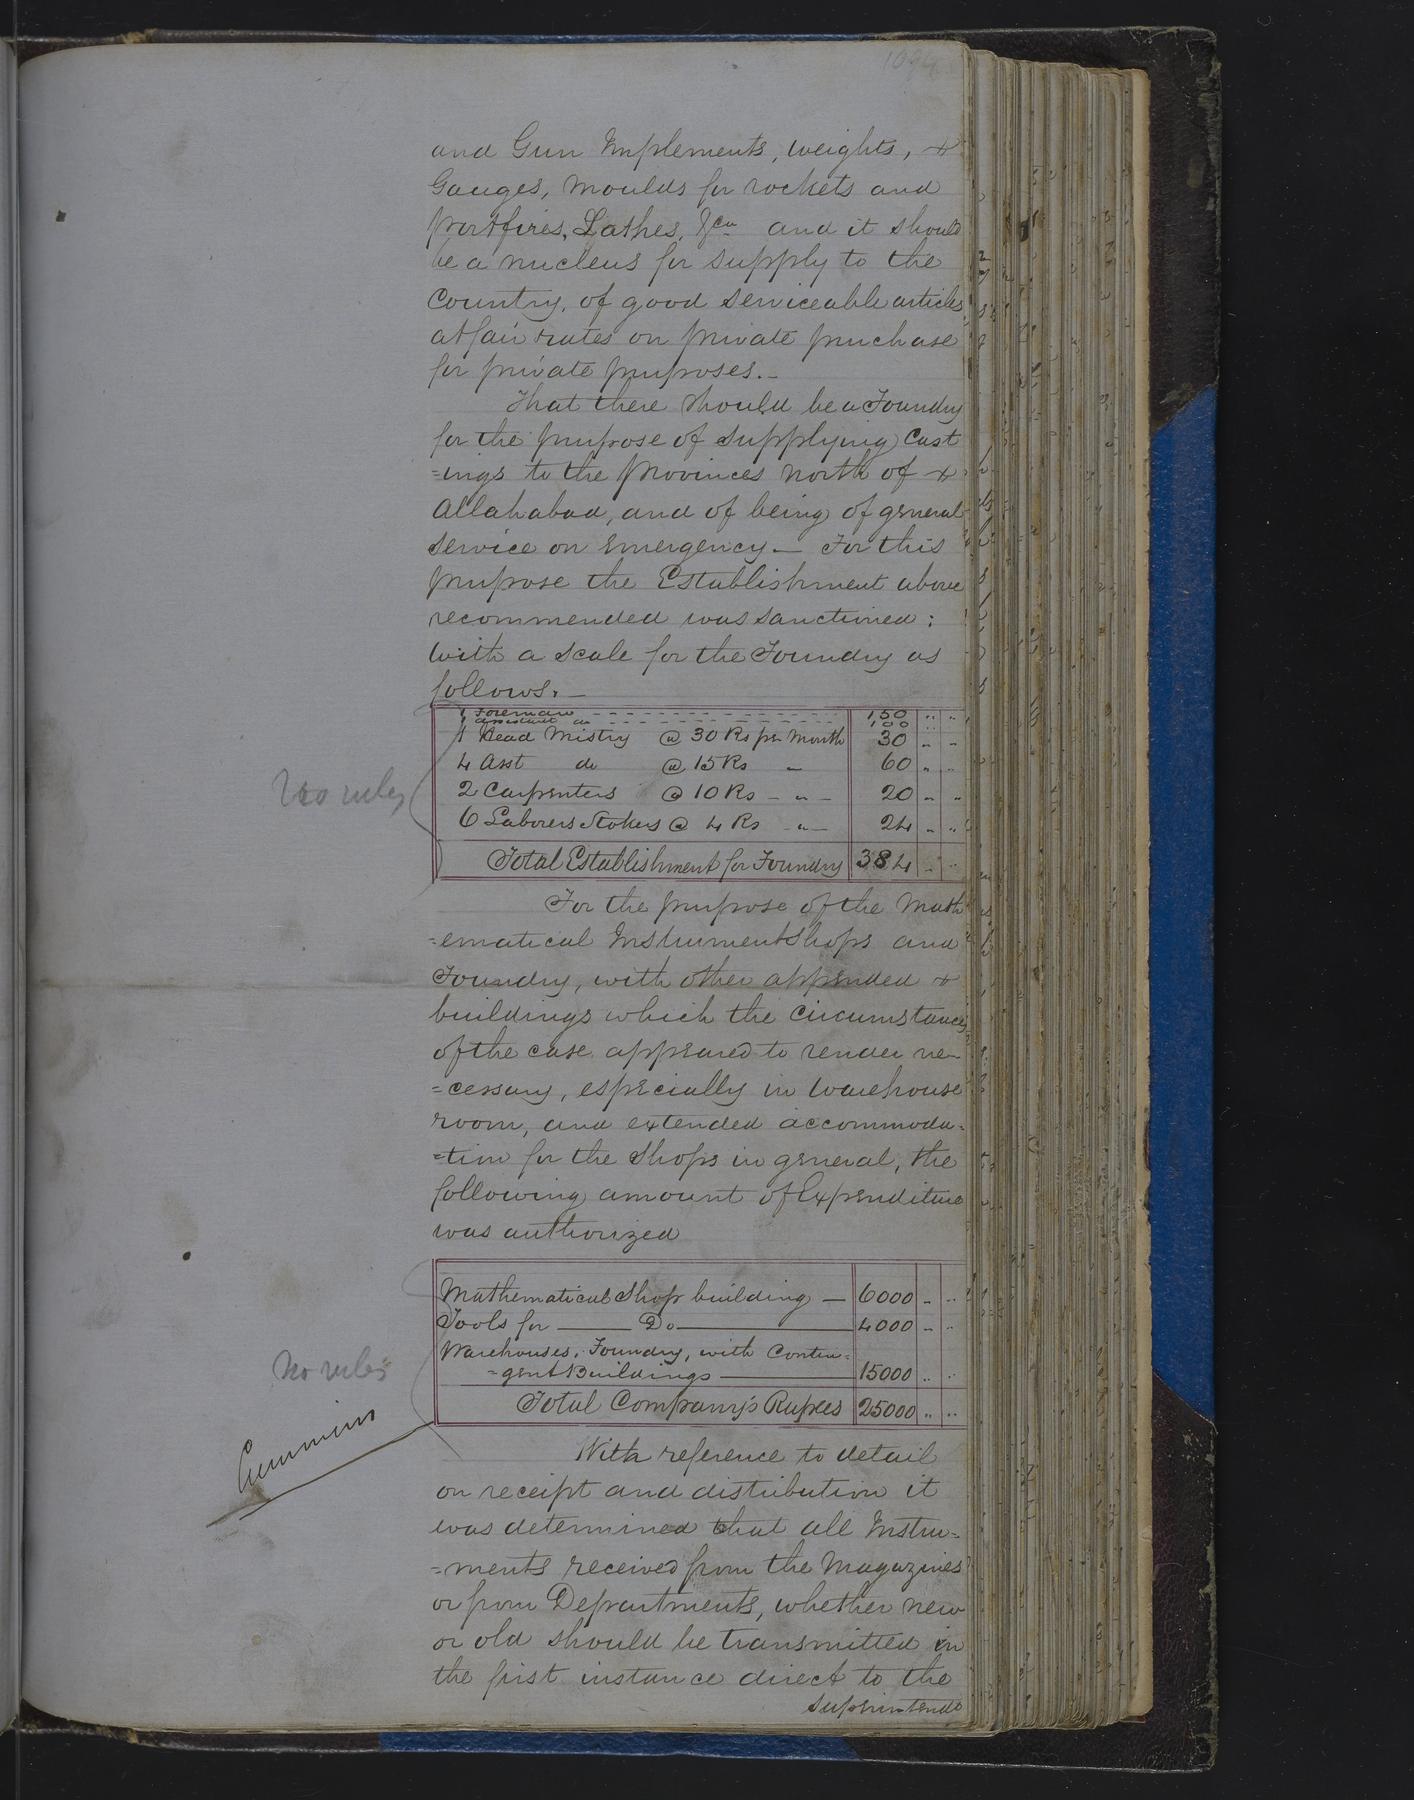 1094
and Gun Implements, weights, &
Gauges, Moulds for rockets and
portfires, Lathes, &ca and it should
be a nucleus for supply to the
Country, of good serviceable articles
at fair rates on private purchase
for private purposes._
That there should be a Foundry
for the purpose of supplying Cast
=ings to the Provinces North of &
Allahabad, and of being of general
service on Emergency — For this
purpose the Establishment above
recommended was sanctioned :
with a scale for the Foundry as
follows. —
1 Foreman - - - - 150 " "
1 Assistant do - - - - 100 " "
1 Head Mistry @ 30 Rs per Month 30 " "
4 Asst do @ 15 Rs " 60 " "
2 Carpenters @ 10 Rs - " - 20 " "
6 Laborers Stokers @ 4 Rs - " - 24 " "
Total Establishment for Foundry 384 " "
No rules
For the purpose of the Math
=ematical Instrument Shops and
Foundry, with other appended &
buildings which the Circumstances
of the case appeared to render ne-
=cessary, especially in Warehouse
room, and extended accommoda-
=tion for the Shops in general, the
following amount of Expenditure
was authorized
Mathematical Shop building — 6000 " "
Tools for —— Do —— 4000 " "
Warehouses, Foundry, with Contin=
=gent Buildings —— 15000 " "
Total Company's Rupees 25000 " "
No rules
Cummins
With reference to detail
on receipt and distribution it
was determined that all Instru=
=ments received from the Magazines
or from Departments, whether new
or old should be transmitted in
the first instance direct to the
Superintendt